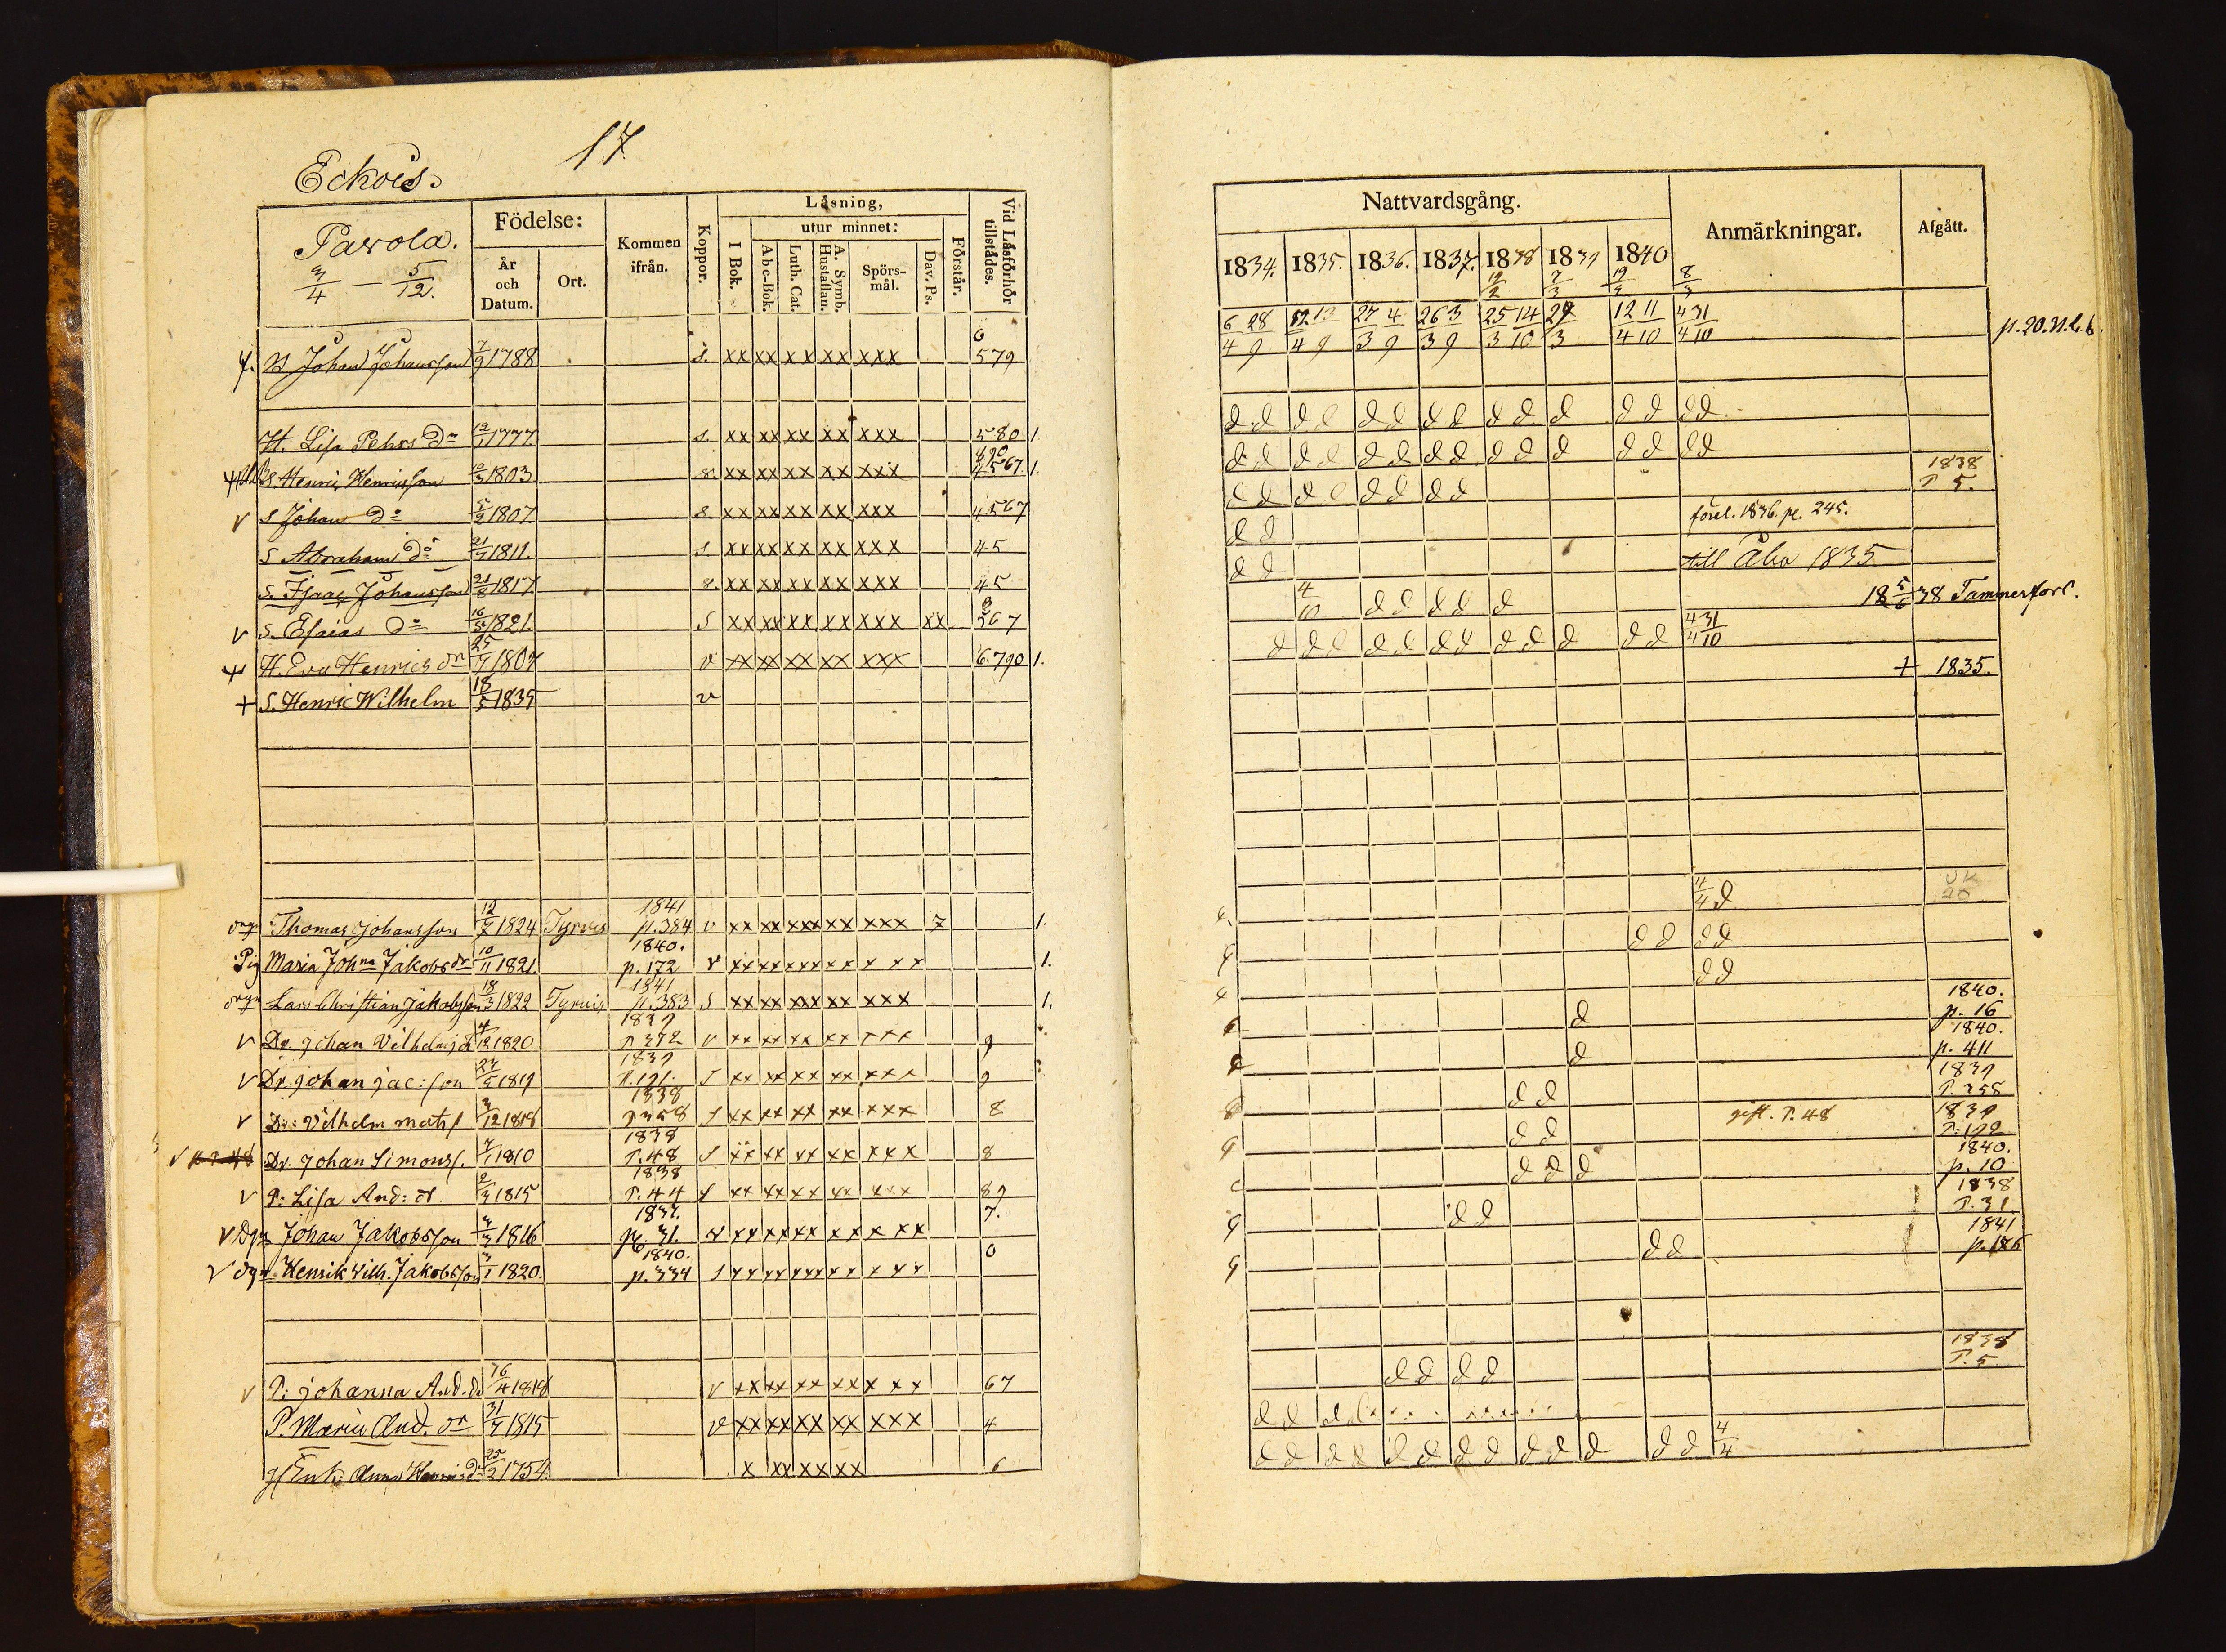 17
Eckois.
Parola.
3/4 — 5/12.
Födelse:
År och Datum.
Ort.
Kommen ifrån.
Koppor.
Låsning,
I Bok.
utur minnet:
Abc-Bok.
Luth. Cat.
A. Symb. Hustaflan.
Spörs-mål.
Dav. Ps.
Förstår.
Vid Låsförhör tillstådes.
B. Johan Johansson 7/9 1788 s. xx xx xx xx xxx 6 579
H. Lisa Pehrs Dr 1777 s. xx xx xx xx xxx 580 1.
S. Henric Henricsson 1803 s. xx xx xx xx xxx 890 4567. 1.
v S. Johan Do 5/2 1807 s. xx xx xx xx xxx 4567
S. Abraham Do 21/7 1811. s. xx xx xx xx xxx 45
S. Isaac Johansson 21/8 1817 s. xx xx xx xx xxx 45
v S. Esaias Do 16/5 1821. S xx xx xx xx xxx xx 8 567
H. Eva Henrics dr 25/7 1807 v xx xx xx xx xxx 6.790 1.
+ S. Henric Wilhelm 18/5 1835 v
drgn Thomas Johansson 12/7 1824 Tyrvis 1841 p. 384 v xx xx xxx xx xxx 7 1.
Pig Maria Johna Jakobs dr 10/11 1821. 1840. p. 172 v xx xx xx xx xxx 1.
drgn Lars Christian Jakobsson 18/3 1822 Tyrvis 1841 p. 383 S xx xx xx xx xxx 1.
v Dr. Johan Vilhelmss 4/12 1820 1839 P 372 v xx xx xx xx xxx 9
v Dr. Johan Jac:son 27/5 1819 1839 P. 191. S xx xx xx xx xxx 9
v Dr: Vilhelm Mats s 3/12 1818 1838 P 358 S xx xx xx xx xxx 8
v Dr. Johan Simonss. 7/1 1810 1838 P. 48 S xx xx xx xx xxx 8
v P: Lisa And: d. 2/3 1815 1838 P. 44 S xx xx xx xx xxx 89
v Dgn Johan Jakobsson 3/3 1816 1837. pg. 31. v xx xx xx xx xxx 7.
v dgn Henrik Wilh. Jakobsson 3/1 1820. 1840. p. 334 S xx xx xx xx xxx 0
v P: Johanna And. dr 16/4 1818 v xx xx xx xx xxx 67
P. Maria And. dr 31/7 1815 v xx xx xx xx xxx 4
Enk: Anna Henrics dr 25/2 1754. x xx xx xx 6
Nattvardsgång.
Anmärkningar.
Afgått.
1834. 1835. 1836. 1837. 1838 1839 1840
12/2 7/3 19/3 8/3
6/4 28/9 12/4 13/9 27/3 4/9 26/3 3/9 25/3 14/10 24/3 12/4 11/10 4/4 31/10 p. 20. N. 6. b.
d d d d d d d d d d d d d d d
d d d d d d d d d d d d d d d
d d d d d d d d 1838 P 5.
d d förel. 1836. pg. 245.
d d till Åbo 1835
4/10 d d d d d 18 5/6 38 Tammerfors.
d d d d d d d d d d d d 4/4 31/10
+ 1835.
4/4 d 20
d d d d
d d
d 1840. p. 16
d 1840. p. 411
d d 1839 P. 358
d d gift. P. 48 1839 P: 192
d d d 1840. p. 10
d d 1838 P. 31.
d d 1841 p. 186
d d d d 1838 P. 5
d d d d
d d d d d d d d d d d d d 4/4